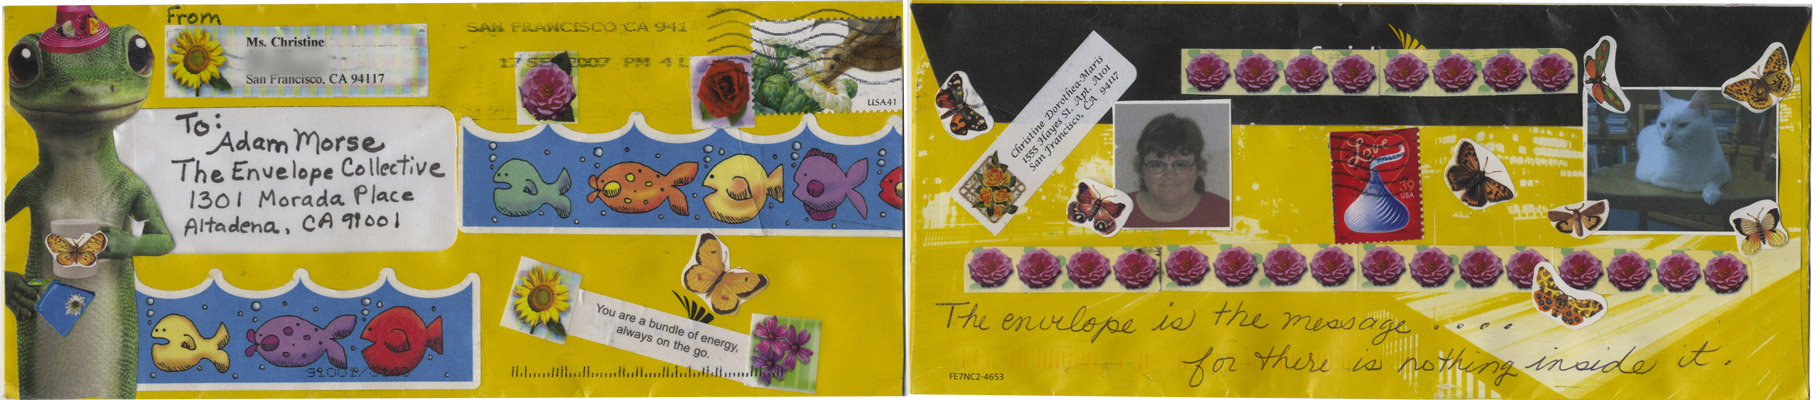 From
Ms. Christine
San Francisco, CA 94117
SAN FRANCISCO CA 941
2007 PM 4 L
USA 41
To:
Adam Morse
The Envelope Collective
1301 Morada Place
Altadena, CA 91001
You are a bundle of energy,
always on the go.
Christine Dorothea-Maris
1555 Hayes St. Apt. A101
San Francisco, CA 94117
Love
39
USA
The envelope is the message . . . .
for there is nothing inside it.
FE7NC2-4653